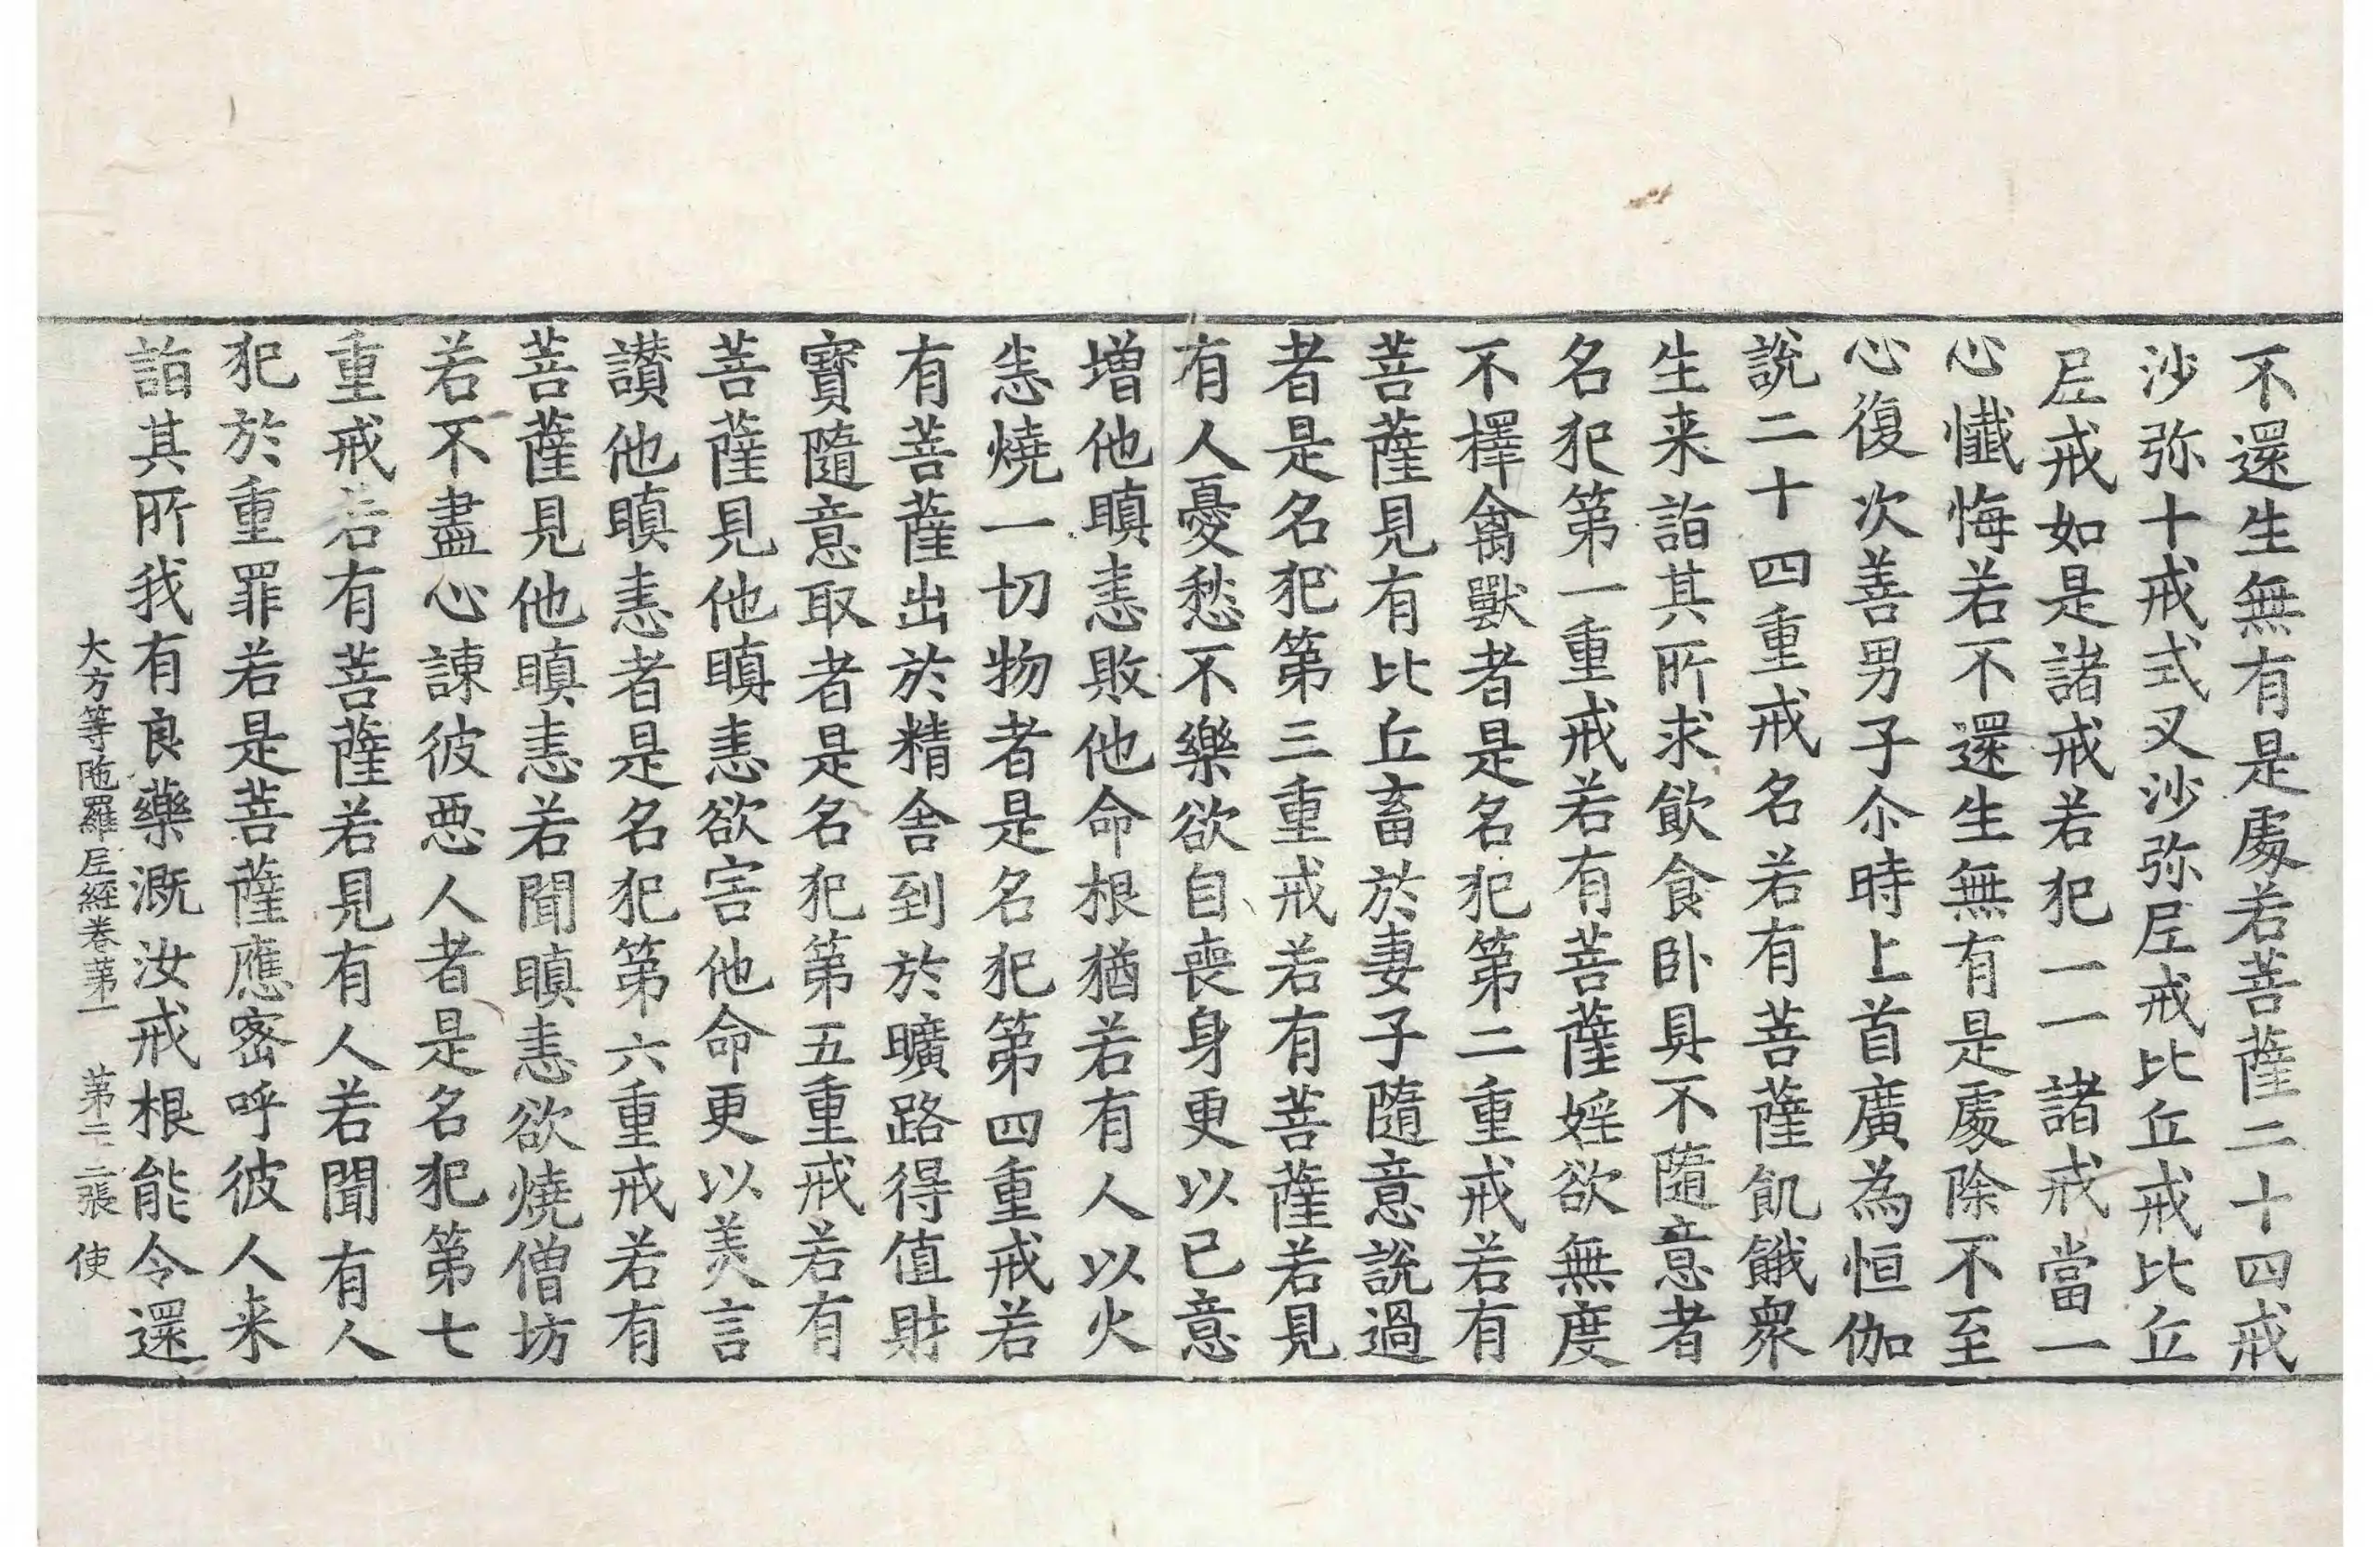 不還生無有是處若菩薩二十四戒
沙弥十戒式叉沙弥𡰱戒比丘戒比丘
𡰱戒如是諸戒若犯一一諸戒當一
心懺悔若不還生無有是處除不至
心復次善男子尒時上首廣為恒伽
說二十四重戒名若有菩薩飢餓衆
生来詣其所求飲食卧具不隨意者
名犯第一重戒若有菩薩婬欲無度
不擇禽獸者是名犯第二重戒若有
菩薩見有比丘畜於妻子隨意說過
者是名犯第三重戒若有菩薩若見
有人憂愁不樂欲自喪身更以已意
増他瞋恚敗他命根猶若有人以火
恚燒一切物者是名犯第四重戒若
有菩薩出於精舍到於曠路得值財
寳隨意取者是名犯第五重戒若有
菩薩見他瞋恚欲害他命更以美言
讃他瞋恚者是名犯第六重戒若有
菩薩見他瞋恚若聞瞋恚欲燒僧坊
若不盡心諫彼悪人者是名犯第七
重戒若有菩薩若見有人若聞有人
犯於重罪若是菩薩應密呼彼人来
詣其所我有良藥溉汝戒根能令還
大方等陁羅𡰱經卷苐一 苐二二張 使